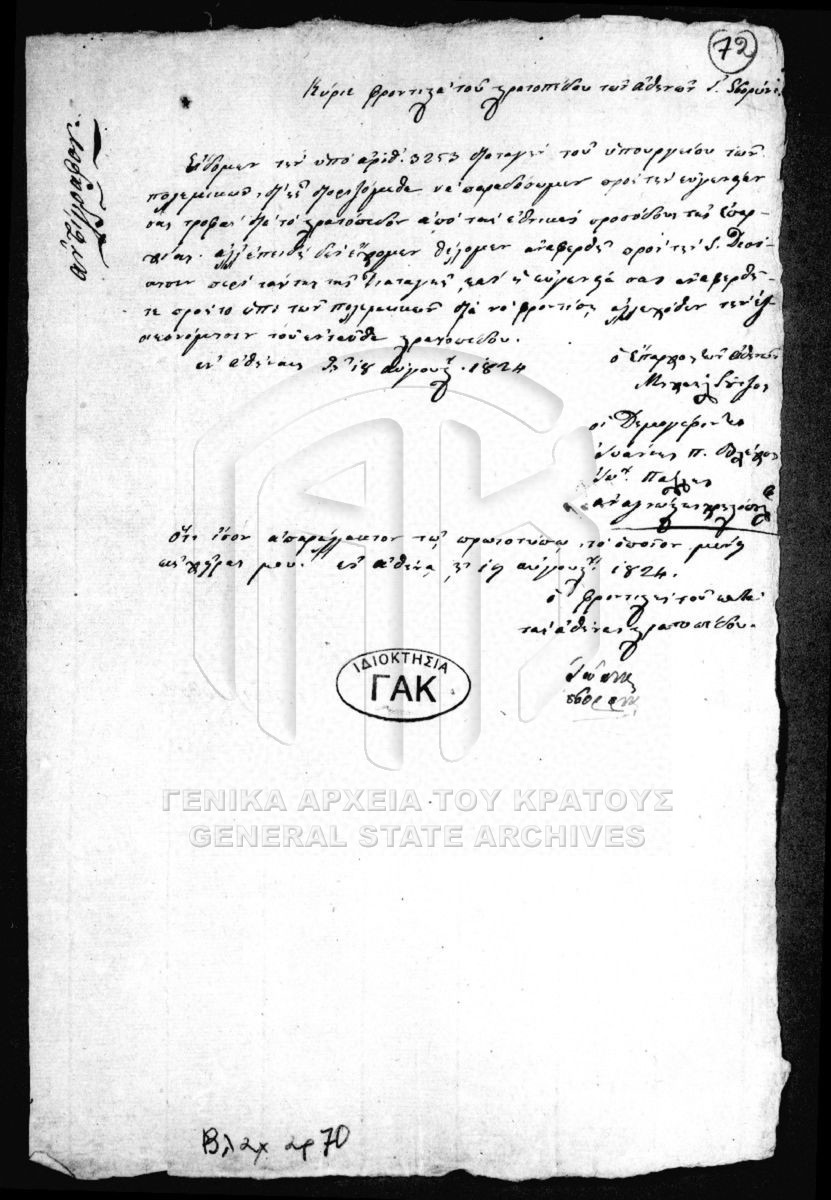 72
Κύριε φροντιστά τοῦ στρατοπέδου τῶν ἀθηνῶν
ἀντίγραφον
Εἴδομεν τὴν ὑπὸ ἀριθ: 3253 διαταγὴν τοῦ ὑπουργείου τῶν
πολεμικῶν, νὰ παραδόσωμεν πρὸς τὴν εὐγενείαν
σας τροφὰς διὰ τὸ στρατόπεδον ἀπὸ τὰς ἐθνικὰς προσόδους τῆς ἐπαρ-
χίας. ἀλλ' ἐπειδὴ δὲν ἔχομεν θέλομεν ἀναφερθῆ πρὸς τὴν Σ. Διοί-
κησιν περὶ ταύτης τῆς διαταγῆς, καὶ ἡ εὐγενεία σας ἀναφερθῆ-
τε πρὸς τὸ ὑπ: τῶν πολεμικῶν διὰ νὰ φροντίσῃ ἀλλαχόθεν τὴν
οἰκονόμησιν τοῦ ἐνταῦθα στρατοπέδου.
ἐν ἀθήναις τῇ 18 αὐγούστ. 1824
ὁ ἔπαρχος τῶν ἀθηνῶν
Μιχαὴλ Σοῦτζος
οἱ Δημογέροντες
Ἰωάννης Π. Βλάχος
ὅτι ἴσον ἀπαράλλακτον τῷ πρωτοτύπῳ, τὸ ὁποῖον μένει
εἰς χεῖράς μου. ἐν ἀθήναις τῇ 19 αὐγούστ. 1824.
ὁ φροντιστὴς τοῦ κατὰ
τὰς ἀθήνας στρατοπέδου.
Ἰωάννης
ΙΔΙΟΚΤΗΣΙΑ
ΓΑΚ
ΓΕΝΙΚΑ ΑΡΧΕΙΑ ΤΟΥ ΚΡΑΤΟΥΣ
GENERAL STATE ARCHIVES
Βλαχ αρ 70